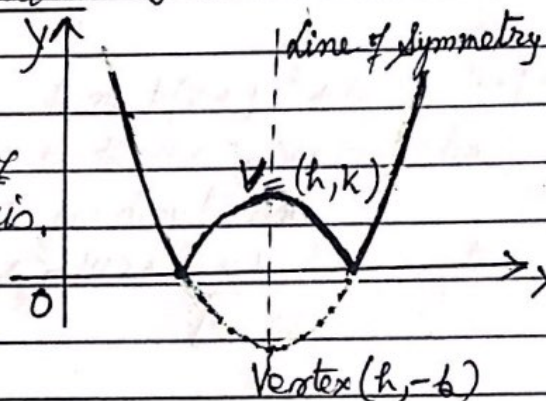 y
Line of Symmetry
V = (h, k)
is.
0
Vertex (h, -k)